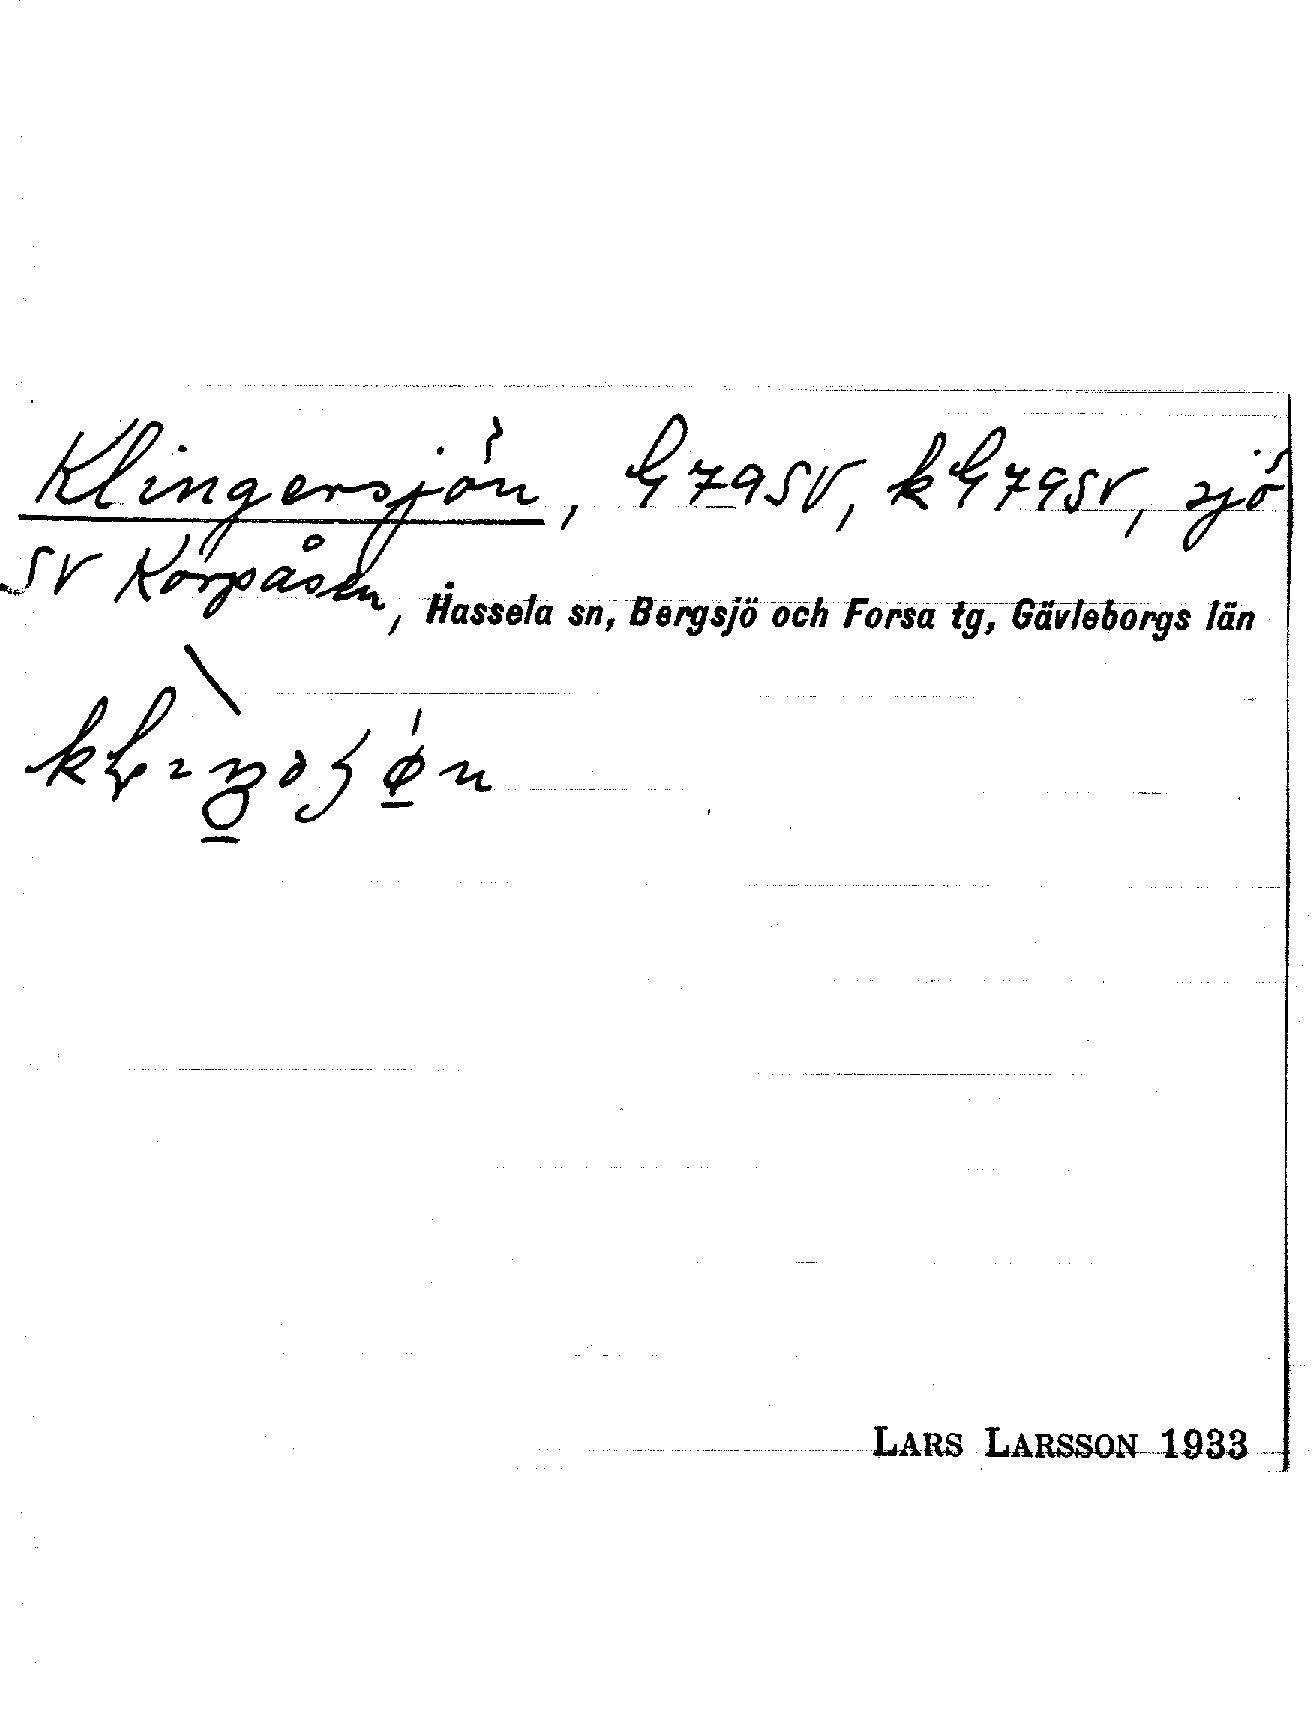 Klingersjön, G79SV, kG79SV, sjö
SV Korpåsen, Hassela sn, Bergsjö och Forsa tg, Gävleborgs län
LARS LARSSON 1933